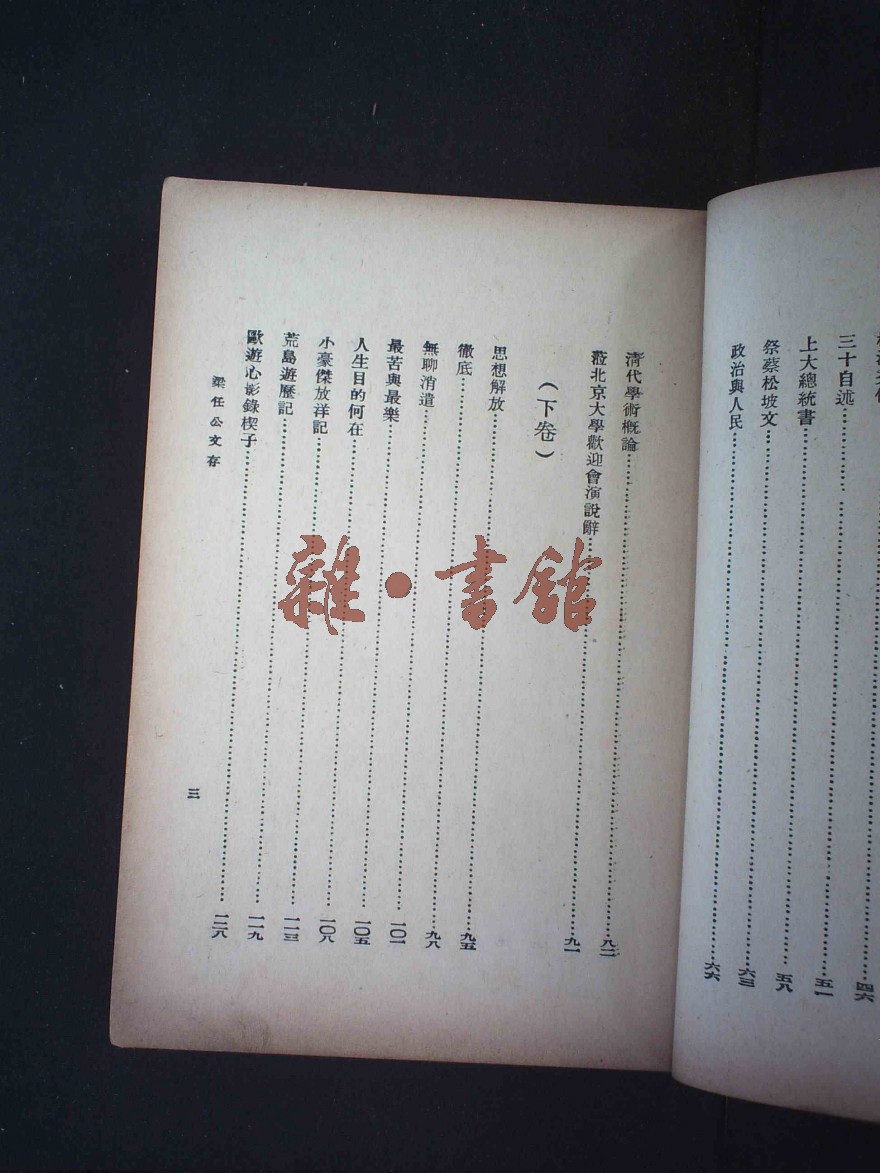 四六
三十自述……五一
上大總統書……五八
祭蔡松坡文……六三
政治與人民……六六
清代學術概論……八二
蒞北京大學歡迎會演說辭……九一
（下卷）
思想解放……九五
徹底……九八
無聊消遣……一〇一
最苦與最樂……一〇五
人生目的何在……一〇八
小豪傑放洋記……一一三
荒島遊歷記……一一九
歐遊心影錄楔子……一二八
梁任公文存
三
雜·書館